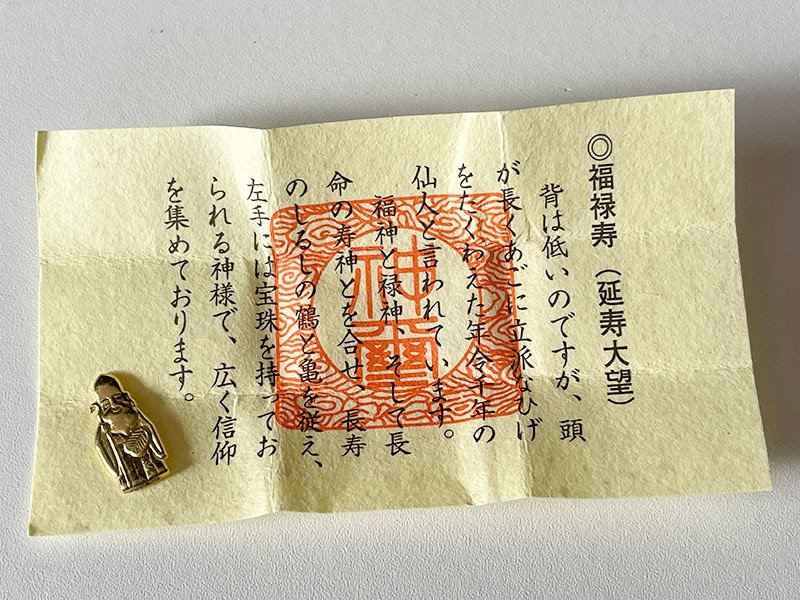 ◎福禄寿(延寿大望)
背は低いのですが、頭
が長くあごに立派なひげ
をたくわえた年令千年の
仙人と言われています。
福神と禄神、そして長
命の寿神とを合せ、長寿
のしるしの鶴と亀を従え、
左手には宝珠を持ってお
られる神様で、広く信仰
を集めております。